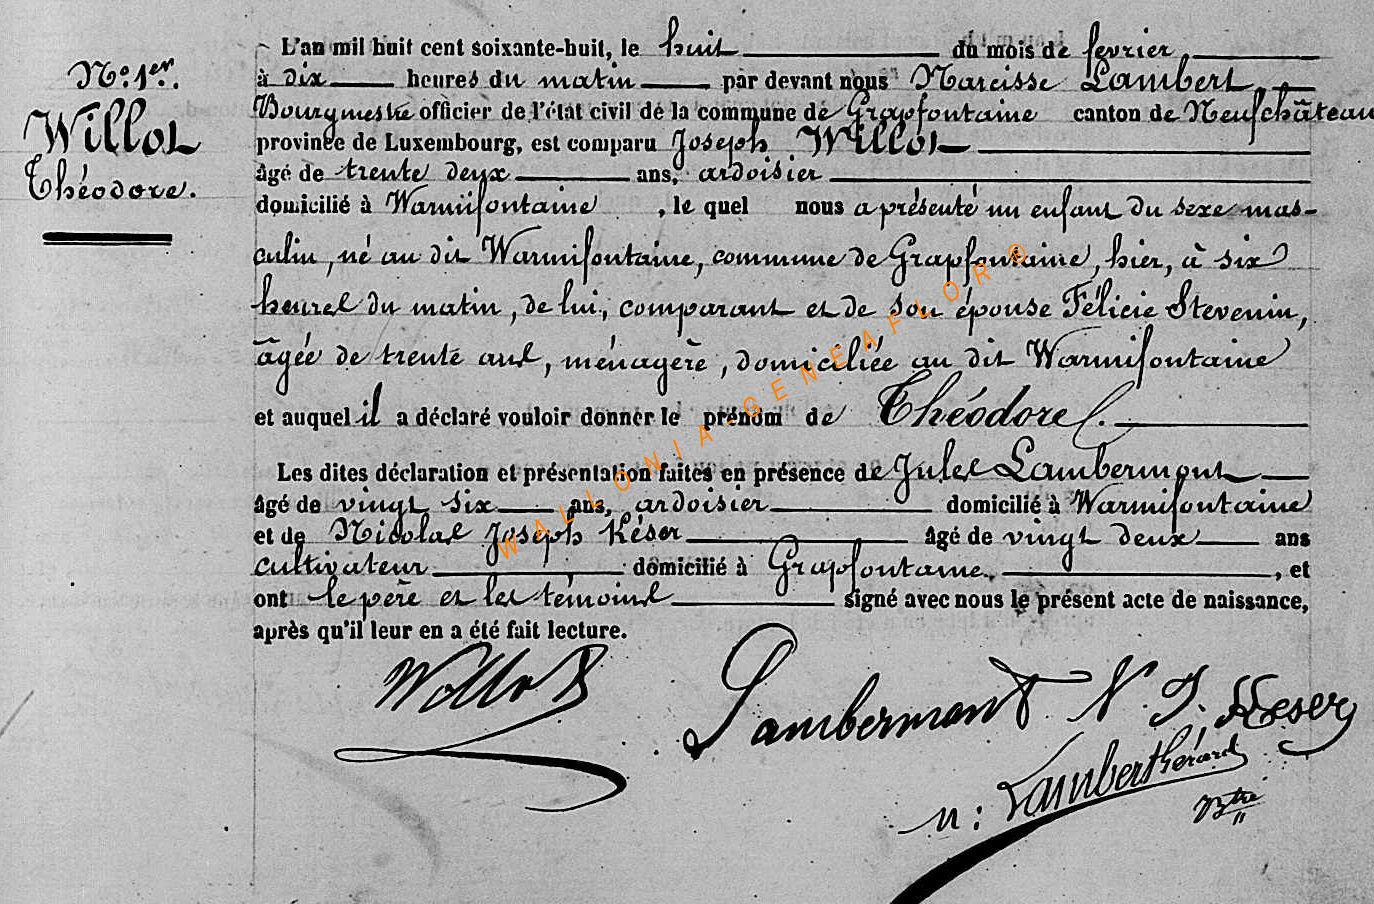 N.° 1er.
Willot
Théodore.
L'an mil huit cent soixante-huit, le huit du mois de février,
à dix heures du matin par devant nous Narcisse Lambert,
Bourgmestre officier de l'état civil de la commune de Grapfontaine canton de Neufchâteau
province de Luxembourg, est comparu Joseph Willot
âgé de trente deux ans, ardoisier
domicilié à Warmifontaine , le quel nous a présenté un enfant du sexe mas-
culin, né au dit Warmifontaine, commune de Grapfontaine, hier, à six
heures du matin, de lui, comparant et de son épouse Félicie Stevenin,
âgée de trente ans, ménagère, domiciliée au dit Warmifontaine
et auquel il a déclaré vouloir donner le prénom de Théodore.
Les dites déclaration et présentation faites en présence de Jules Lambermont
âgé de vingt six ans, ardoisier domicilié à Warmifontaine
et de Nicolas Joseph Késer âgé de vingt deux ans
cultivateur domicilié à Grapfontaine, et
ont le père et les témoins signé avec nous le présent acte de naissance,
après qu'il leur en a été fait lecture.
Willot
Lambermont N. J. Keser
N: Lambert Gérard
Btre
WALLONIA-GENEAFLOR©